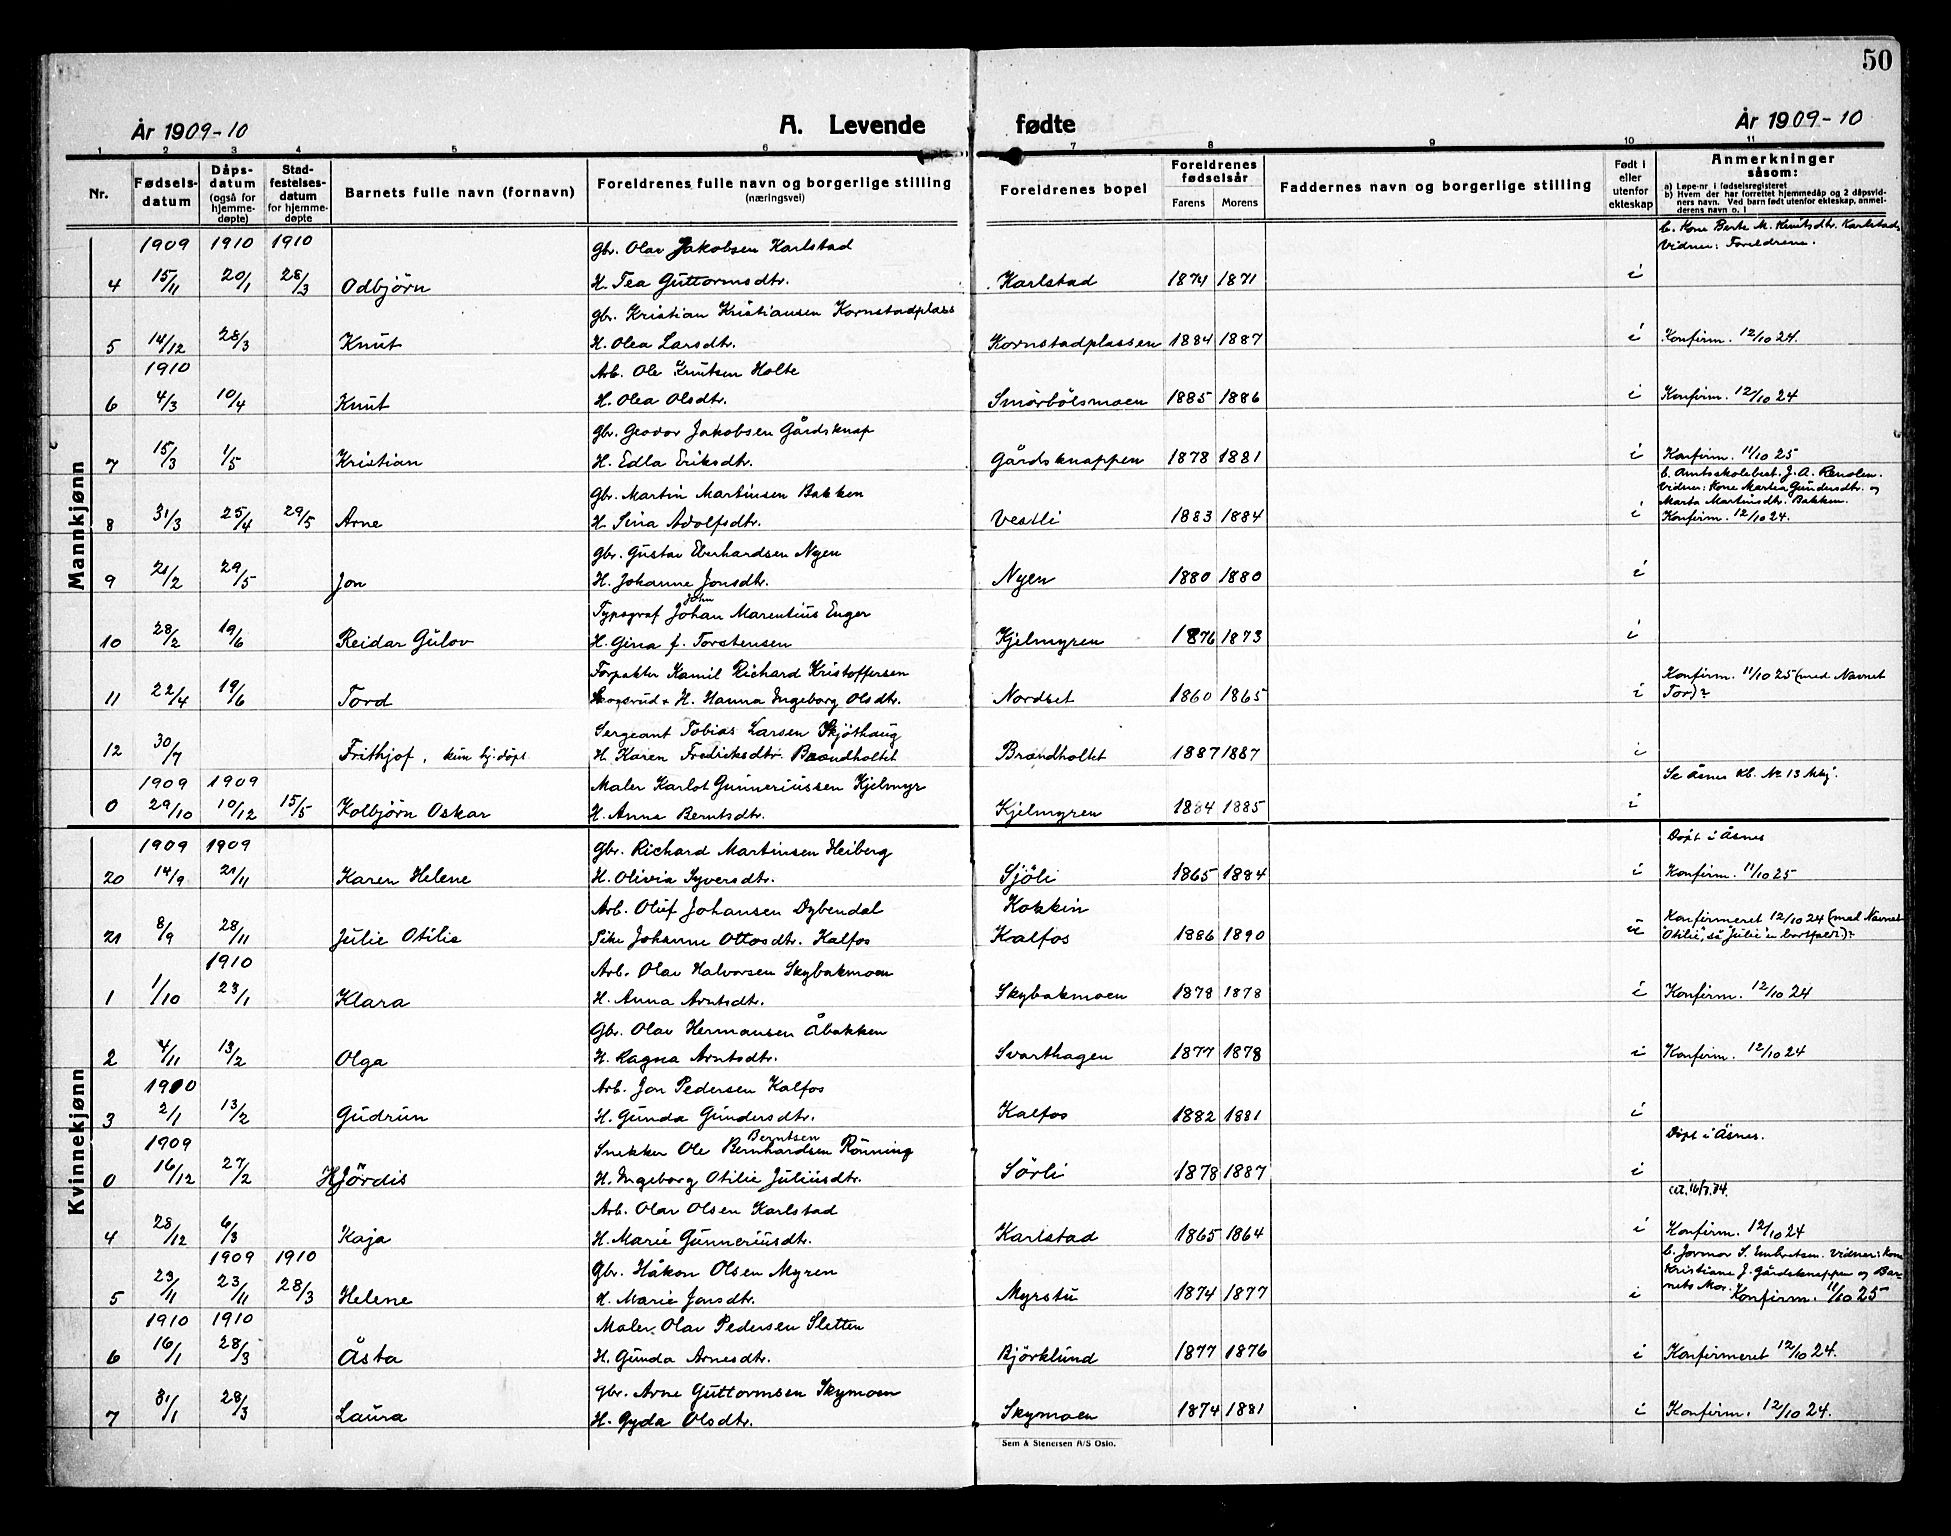 50
År 1909-10 A. Levende fødte År 1909-10
1 2 3 4 5 6 7 8 9 10 11
Nr. Fødselsdatum Dåpsdatum (også for hjemmedøpte) Stadfestelsesdatum for hjemmedøpte Barnets fulle navn (fornavn) Foreldrenes fulle navn og borgerlige stilling (næringsvei) Foreldrenes bopel Foreldrenes fødselsår Farens Morens Faddernes navn og borgerlige stilling Født i eller utenfor ekteskap Anmerkninger såsom:
a) Løpe-nr i fødselsregisteret
b) Hvem der har forrettet hjemmedåp og 2 dåpsvidners navn. Ved barn født utenfor ekteskap, anmelderens navn o. l
Mannkjønn
1909 1910 1910 Gbr. Olav Jakobsen Karlstad b. Kone Berte M. Knutsdtr. Karlstad
Vidner: Foreldrene.
4 15/11 20/1 28/3 Odbjørn H. Tea Guttormsdtr. Karlstad 1874 1871 i
Gbr. Kristian Kristiansen Kornstadplass
5 14/12 28/3 Knut H. Olea Larsdtr. Kornstadplassen 1884 1887 i Konfirm. 12/10 24.
1910 Arb. Ole Knutsen Holte
6 4/3 10/4 Knut H. Olea Olsdtr. Smörbölsmoen 1885 1886 i Konfirm. 12/10 24
Gbr. Geodor Jakobsen Gårdsknap
7 15/3 1/5 Kristian H. Edla Eriksdtr. Gårdsknappen 1878 1881 i Konfirm. 11/10 25
Gbr. Martin Martinsen Bakken b. Amtsskolebest. J. A. Renolen.
Vidner: Kone Martea Gundersdtr. og
Marta Martinsdtr. Bakken.
8 31/3 25/4 29/5 Arne H. Sina Adolfsdtr. Vestli 1883 1884 i Konfirm. 12/10 24.
Gbr. Gustav Eberhardsen Nyen
9 21/2 29/5 Jon H. Johanne Jonsdtr. Nyen 1880 1880 i
John
Typograf Johan Marentius Enger
10 28/2 19/6 Reidar Gulov H. Gina f. Torstensen Kjelmyren 1876 1873 i
Forpakter Kamil Richard Kristoffersen Konfirm. 11/10 25 (med Navnet
11 22/4 19/6 Tord Skogsrud & H. Hanna Ingeborg Olsdtr. Nordset 1860 1865 i Tor)?
Sergeant Tobias Larsen Skjöthaug
12 30/7 Frithjof, kun hj.döpt H. Karen Fredriksdtr. Brandholtet Brandholtet 1887 1887 i
1909 1909 Maler Karlot Gunneriussen Kjelmyr Se Åsnes Kb. No 13 Mkj.
0 29/10 10/12 15/5 Kolbjörn Oskar H. Anna Berntsdtr. Kjelmyren 1884 1885 i
Kvinnekjønn
1909 1909 Gbr. Richard Martinsen Heiberg Döpt i Åsnes
20 14/9 21/11 Karen Helene H. Olivia Syversdtr. Sjöli 1865 1884 i Konfirm. 11/10 25
Arb. Oluf Johansen Dybendal Kokkin Konfirmeret 12/10 24 (med Navnet
21 8/9 28/11 Julie Otilie Pike Johanne Ottosdtr. Kalfos Kalfos 1886 1890 u "Otilie", så "Julie" er bortfaldt)?
1910 Arb. Olav Halvorsen Skybakmoen
1 1/10 23/1 Klara H. Anna Arntsdtr. Skybakmoen 1878 1878 i Konfirm. 12/10 24
Gbr. Olav Hermansen Åbakken
2 4/11 13/2 Olga H. Ragna Arntsdtr. Svarthagen 1877 1878 i Konfirm. 12/10 24
1910 Arb. Jon Pedersen Kalfos
3 2/1 13/2 Gudrun H. Gunda Gundersdtr. Kalfos 1882 1881 i
Berntsen
1909 Snekker Ole Bernhardsen Rönning Döpt i Åsnes.
0 16/12 27/2 Hjördis H. Ingeborg Otilie Juliusdtr. Sörli 1878 1887 i
Arb. Olav Olsen Karlstad
4 28/12 6/3 Kaja H. Marie Gunneriusdtr. Karlstad 1865 1864 i Konfirm. 12/10 24
1909 1910 Gbr. Håkon Olsen Myren b. Jormor S. Embretsen. Vidner: Kone
Kristiane J. Gårdsknappen og Bar-
5 23/11 23/11 28/3 Helene H. Marie Jonsdtr. Myrstu 1874 1877 i nets Mor. Konfirm. 11/10 25
1910 1910 Maler Olav Pedersen Sletten
6 16/1 28/3 Åsta H. Gunda Arnesdtr. Björklund 1877 1876 i Konfirmeret 12/10 24.
Gbr. Arne Guttormsen Skymoen
7 31/1 28/3 Laura H. Gyda Olsdtr. Skymoen 1874 1881 i Konfirm. 12/10 24.
Sem & Stenersen A/S Oslo.